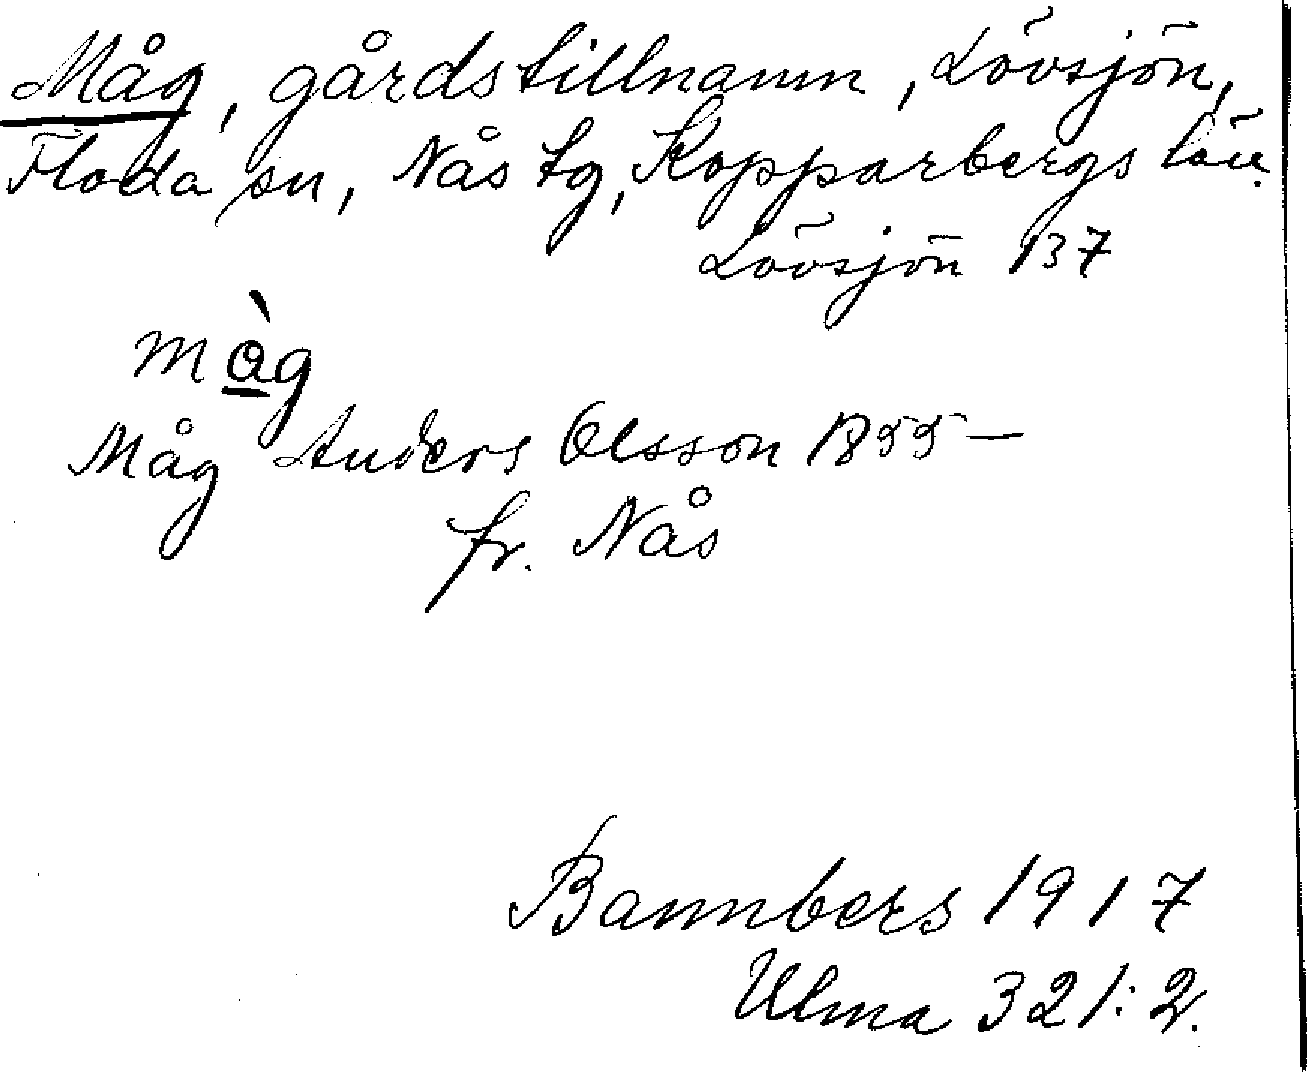 Måg, gårdstillnamn, Lövsjön,
Floda sn, Nås tg, Kopparbergs län.
Lövsjön 137
màg
Måg Anders Olsson 1855—
fr. Nås
Bannbers 1917
Ulma 321:2.